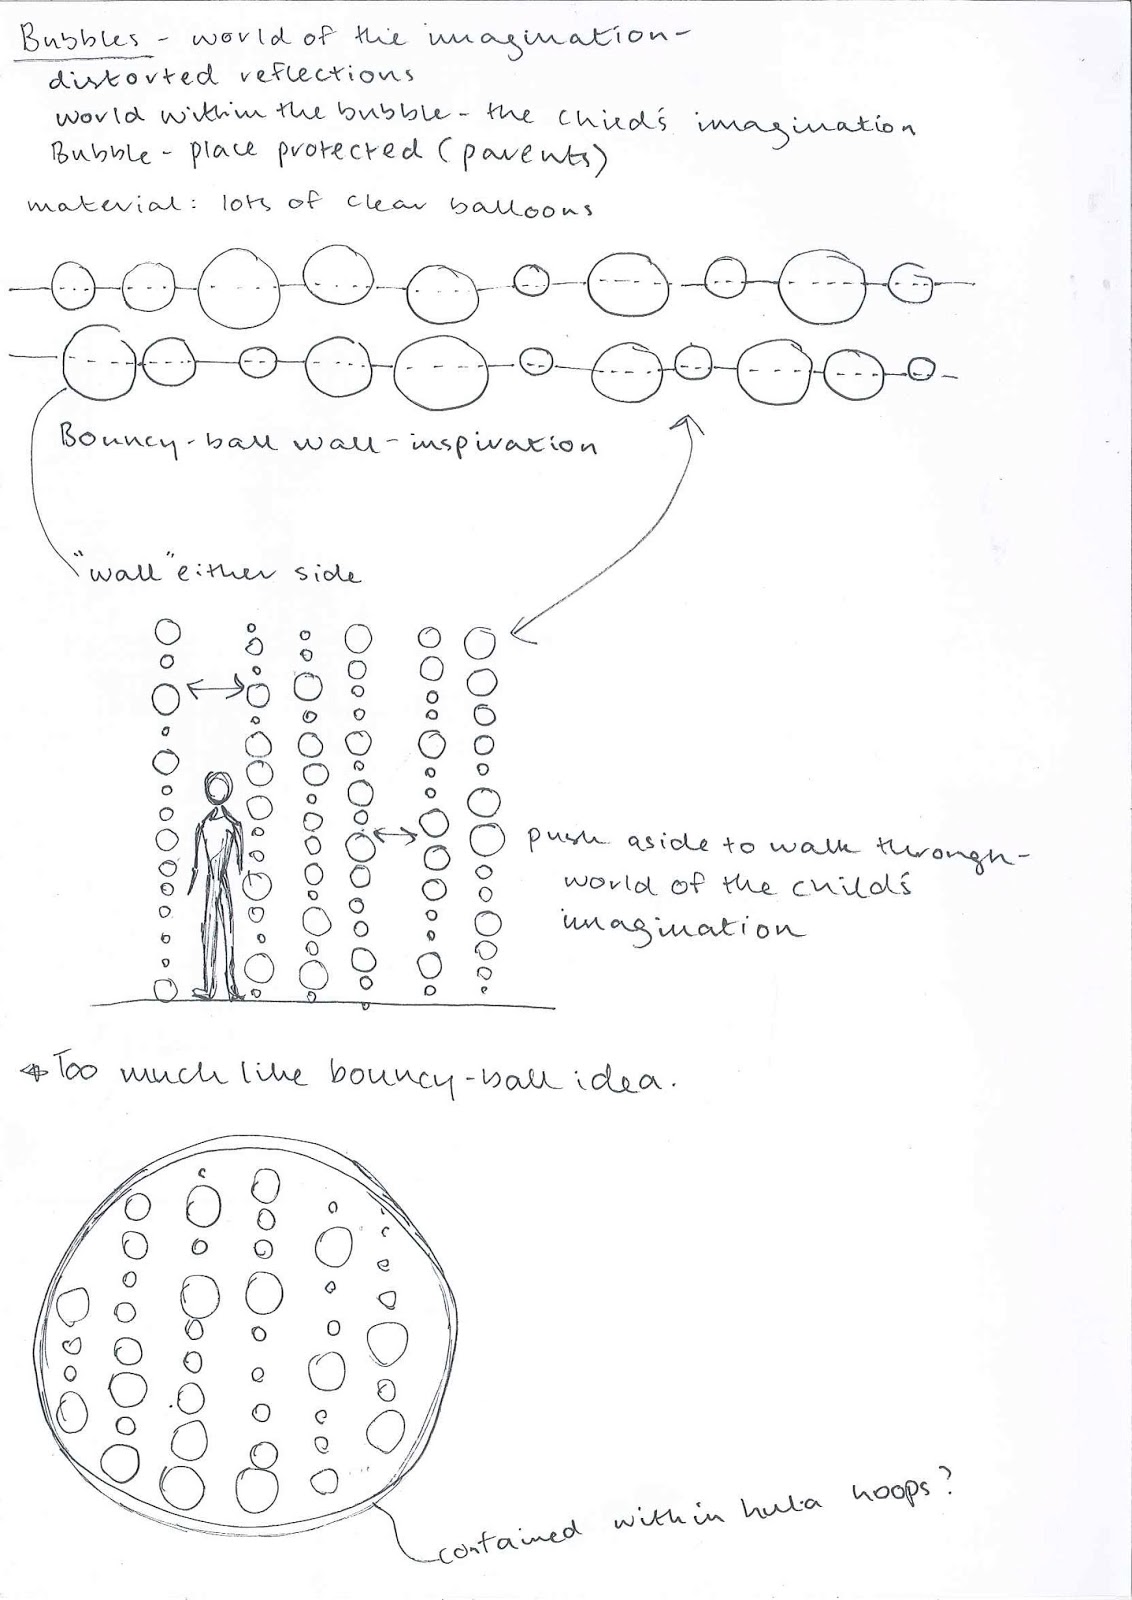 Bubbles - world of the imagination -
distorted reflections
world within the bubble - the child's imagination
Bubble - place protected (parents)
material: lots of clear balloons
Bouncy-ball wall - inspiration
"wall" either side
push aside to walk through -
world of the child's
imagination
Too much like bouncy-ball idea.
contained within hula hoops?